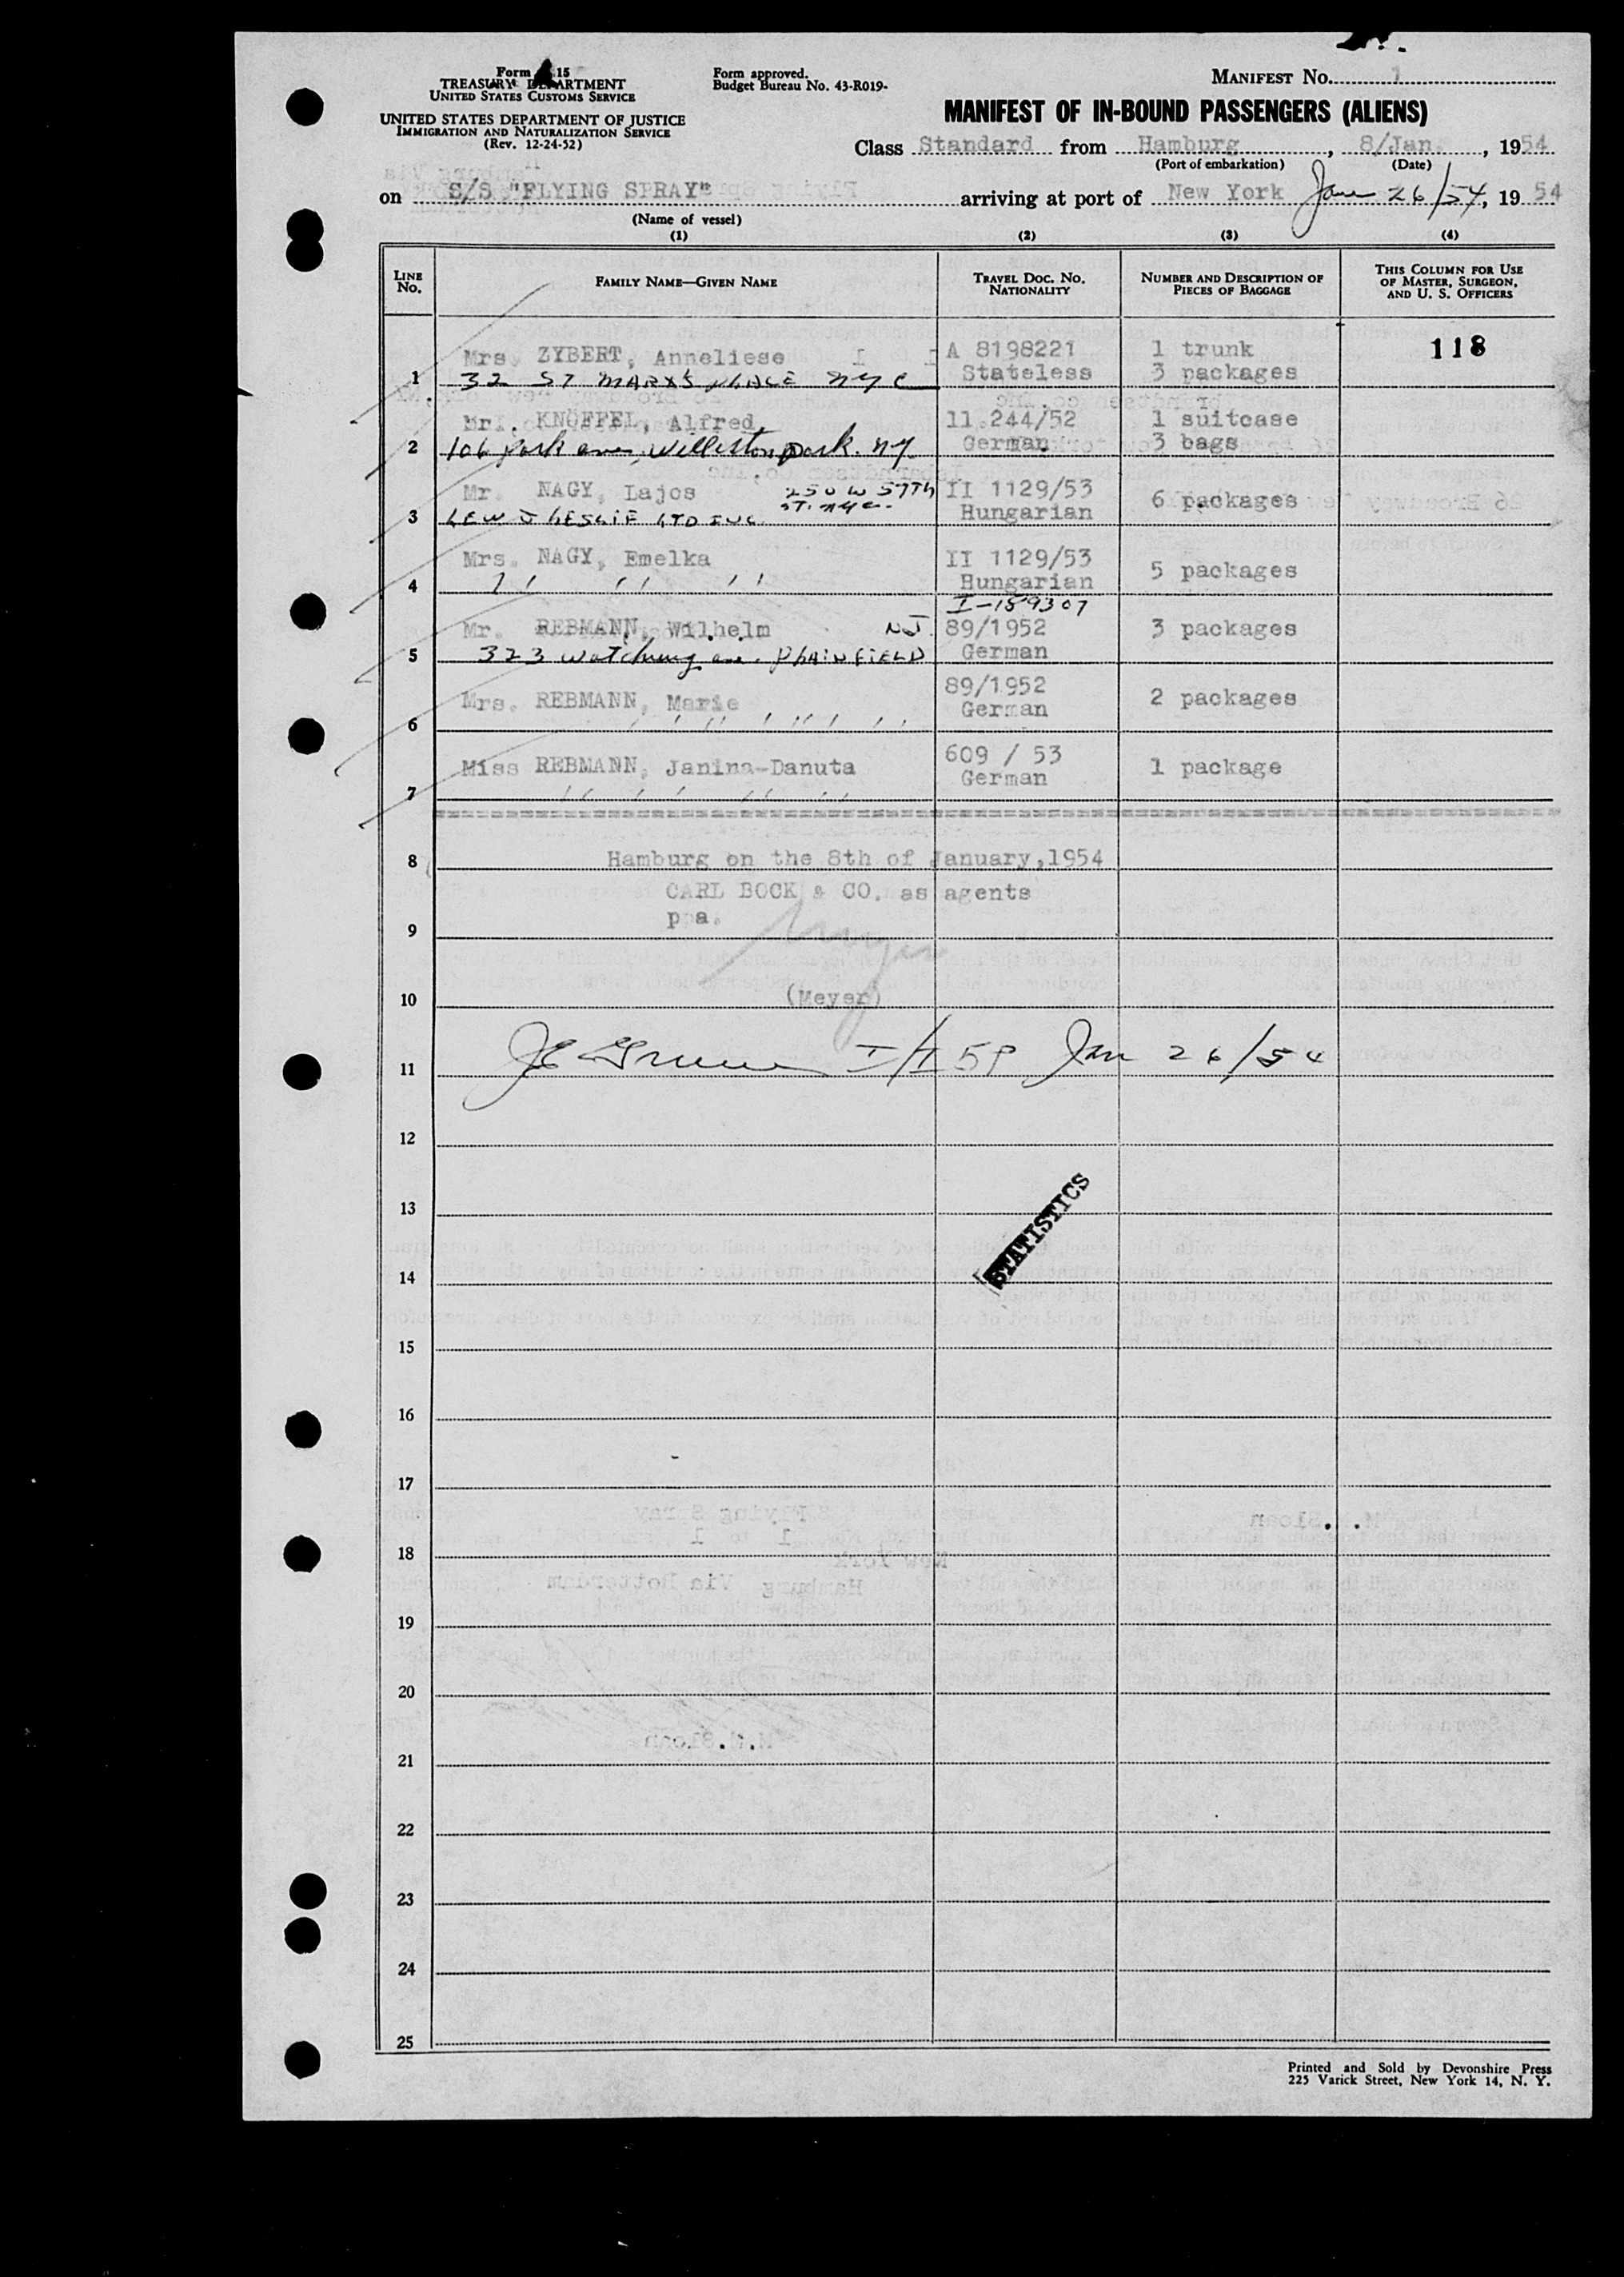 Form 15
TREASURY DEPARTMENT
UNITED STATES CUSTOMS SERVICE
UNITED STATES DEPARTMENT OF JUSTICE
IMMIGRATION AND NATURALIZATION SERVICE
(Rev. 12-24-52)
Form approved.
Budget Bureau No. 43-R019-
MANIFEST NO. 1
MANIFEST OF IN-BOUND PASSENGERS (ALIENS)
Class Standard from Hamburg, 8/Jan., 1954
(Port of embarkation) (Date)
on S/S "FLYING SPRAY" arriving at port of New York Jan 26/54, 19 54
(Name of vessel)
(1) (2) (3) (4)
LINE NO. FAMILY NAME—GIVEN NAME TRAVEL DOC. NO. NATIONALITY NUMBER AND DESCRIPTION OF PIECES OF BAGGAGE THIS COLUMN FOR USE OF MASTER, SURGEON, AND U. S. OFFICERS
Mrs. ZYBERT, Anneliese A 8198221 1 trunk 118
1 32 ST MARKS PLACE NYC Stateless 3 packages
Mr. KNÖFFEL, Alfred 11.244/52 1 suitcase
2 106 Park ave, Williston Park. NY. German 3 bags
Mr. NAGY, Lajos 250 W 57TH ST. NYC. II 1129/53 6 packages
3 LEW J LESLIE LTD INC. Hungarian
Mrs. NAGY, Emelka II 1129/53 5 packages
4 '' '' '' Hungarian
I-189307
Mr. REBMANN, Wilhelm NJ. 89/1952 3 packages
5 323 Watchung ave. PLAINFIELD German
Mrs. REBMANN, Marie 89/1952 2 packages
6 German
Miss REBMANN, Janina-Danuta 609 / 53 1 package
7 German
8 Hamburg on the 8th of January,1954
CARL BOCK & CO. as agents
9 ppa.
10 (Meyer)
11 Jan 26/54
12
13
STATISTICS
14
15
16
17
18
19
20
21
22
23
24
25
Printed and Sold by Devonshire Press
225 Varick Street, New York 14, N. Y.